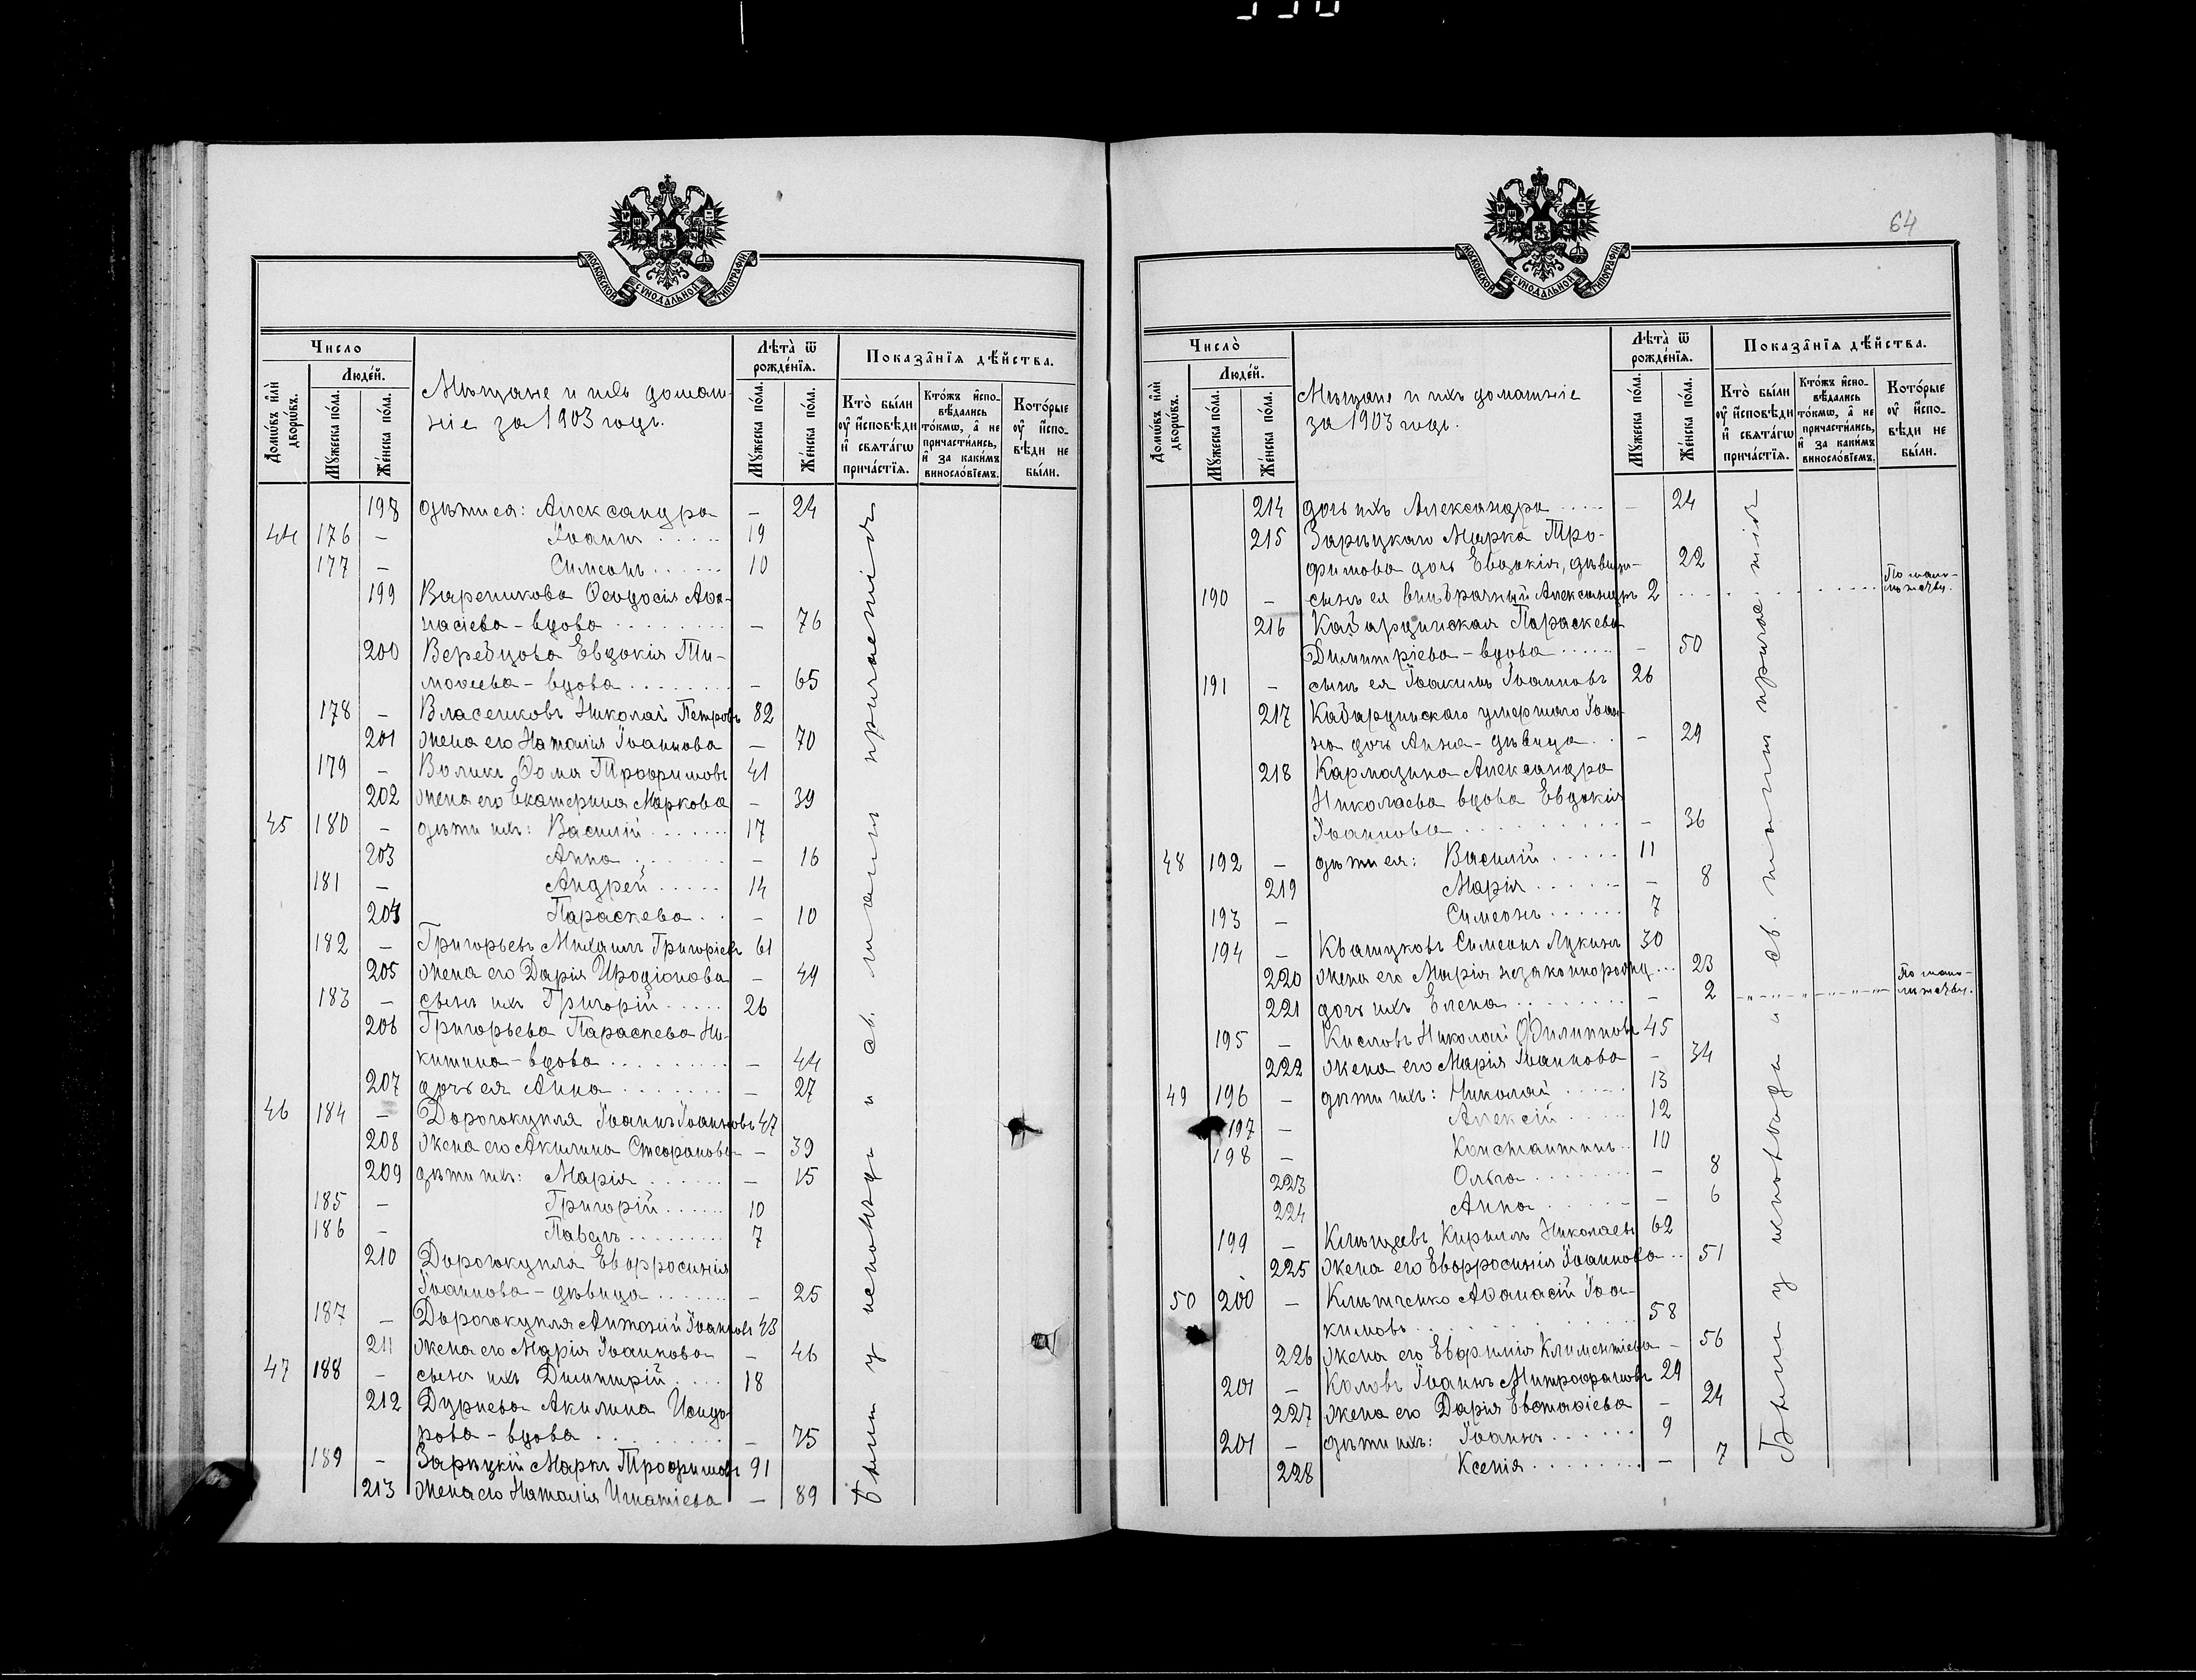 64
МОСКОВСКОЙ СѴНОДАЛЬНОЙ ТИПОГРАФІИ
Число
Людей.
Домѡвъ или дворѡвъ.
Мужеска пола.
Женска пола.
Мѣщане и ихъ домаш-
ніе за 1903 годъ.
Лѣта ѿ рожденія.
Мужеска пола.
Женска пола.
Показанія дѣйства.
Кто были оу исповѣди и святагѡ причастія.
Ктожъ исповѣдались токмѡ, а не причастились, и за какимъ винословіемъ.
Которые оу исповѣди не были.
198 дѣти ея: Александра — 24
44 176 — Іоаннъ 19
177 — Симеонъ 10
199 Вареникова Ѳеодосія Аѳа-
насіева - вдова — 76
200 Веребцова Евдокія Ти-
моѳеева - вдова — 65
178 — Власенковъ Николай Петровъ 82
201 жена его Наталія Іоаннова — 70
179 — Воликъ Ѳома Трофимовъ 41
202 жена его Екатерина Маркова — 39
45 180 — дѣти ихъ: Василій 17
203 Анна — 16
181 — Андрей 14
204 Параскева — 10
182 — Григорьевъ Михаилъ Григоріевъ 61
205 жена его Дарія Иродіонова — 49
183 — сынъ ихъ Григорій 26
206 Григорьева Параскева Ни-
китина - вдова — 44
207 дочь ея Анна — 27
46 184 — Дорогокупля Іоаннъ Іоанновъ 47
208 жена его Акилина Стефанова — 39
209 дѣти ихъ: Марія — 15
185 — Григорій 10
186 — Павелъ 7
210 Дорогокупля Евфросинія
Іоаннова - дѣвица — 25
187 — Дорогокупля Антоній Іоанновъ 43
211 жена его Марія Іоаннова — 46
47 188 — сынъ ихъ Димитрій 18
212 Дурнева Акилина Исидо-
рова - вдова — 75
189 — Зарицкій Маркъ Трофимовъ 91
213 жена его Наталія Игнатіева — 89
Были у исповѣди и св. таинъ причастія
МОСКОВСКОЙ СѴНОДАЛЬНОЙ ТИПОГРАФІИ
Число
Людей.
Домѡвъ или дворѡвъ.
Мужеска пола.
Женска пола.
Мѣщане и ихъ домашніе
за 1903 годъ.
Лѣта ѿ рожденія.
Мужеска пола.
Женска пола.
Показанія дѣйства.
Кто были оу исповѣди и святагѡ причастія.
Ктожъ исповѣдались токмѡ, а не причастились, и за какимъ винословіемъ.
Которые оу исповѣди не были.
214 дочь ихъ Александра — 24
215 Зарицкаго Марка Тро-
фимова дочь Евдокія, дѣвица — 22
190 — сынъ ея внѣбрачный Александръ 2 По мало-
лѣтству.
216 Кабардинская Параскева
Димитріева - вдова — 50
191 — сынъ ея Іоакимъ Іоанновъ 26
217 Кабардинскаго умершаго Іоан-
на дочь Анна - дѣвица — 29
218 Кармазина Александра
Николаева вдова Евдокія
Іоаннова — 36
48 192 — дѣти ея: Василій 11
219 Марія — 8
193 — Симеонъ 7
194 — Квашуковъ Симеонъ Лукинъ 30
220 жена его Марія незаконнорожд. 23
221 дочь ихъ Елена — 2 По мало-
лѣтству.
195 — Кисловъ Николай Филипповъ 45
222 жена его Марія Іоаннова — 34
49 196 — дѣти ихъ: Николай 13
197 — Алексій 12
198 — Константинъ 10
223 Ольга — 8
224 Анна — 6
199 — Клѣщевъ Кириллъ Николаевъ 62
225 жена его Евфросинія Іоаннова 51
50 200 — Климченко Аѳанасій Іоа-
кимовъ 58
226 жена его Евфимія Климентіева — 56
201 — Коловъ Іоаннъ Митрофановъ 29
227 жена его Дарія Евстафіева — 24
201 — дѣти ихъ: Іоаннъ 9
228 Ксенія — 7
Были у исповѣди и св. таинъ причастія